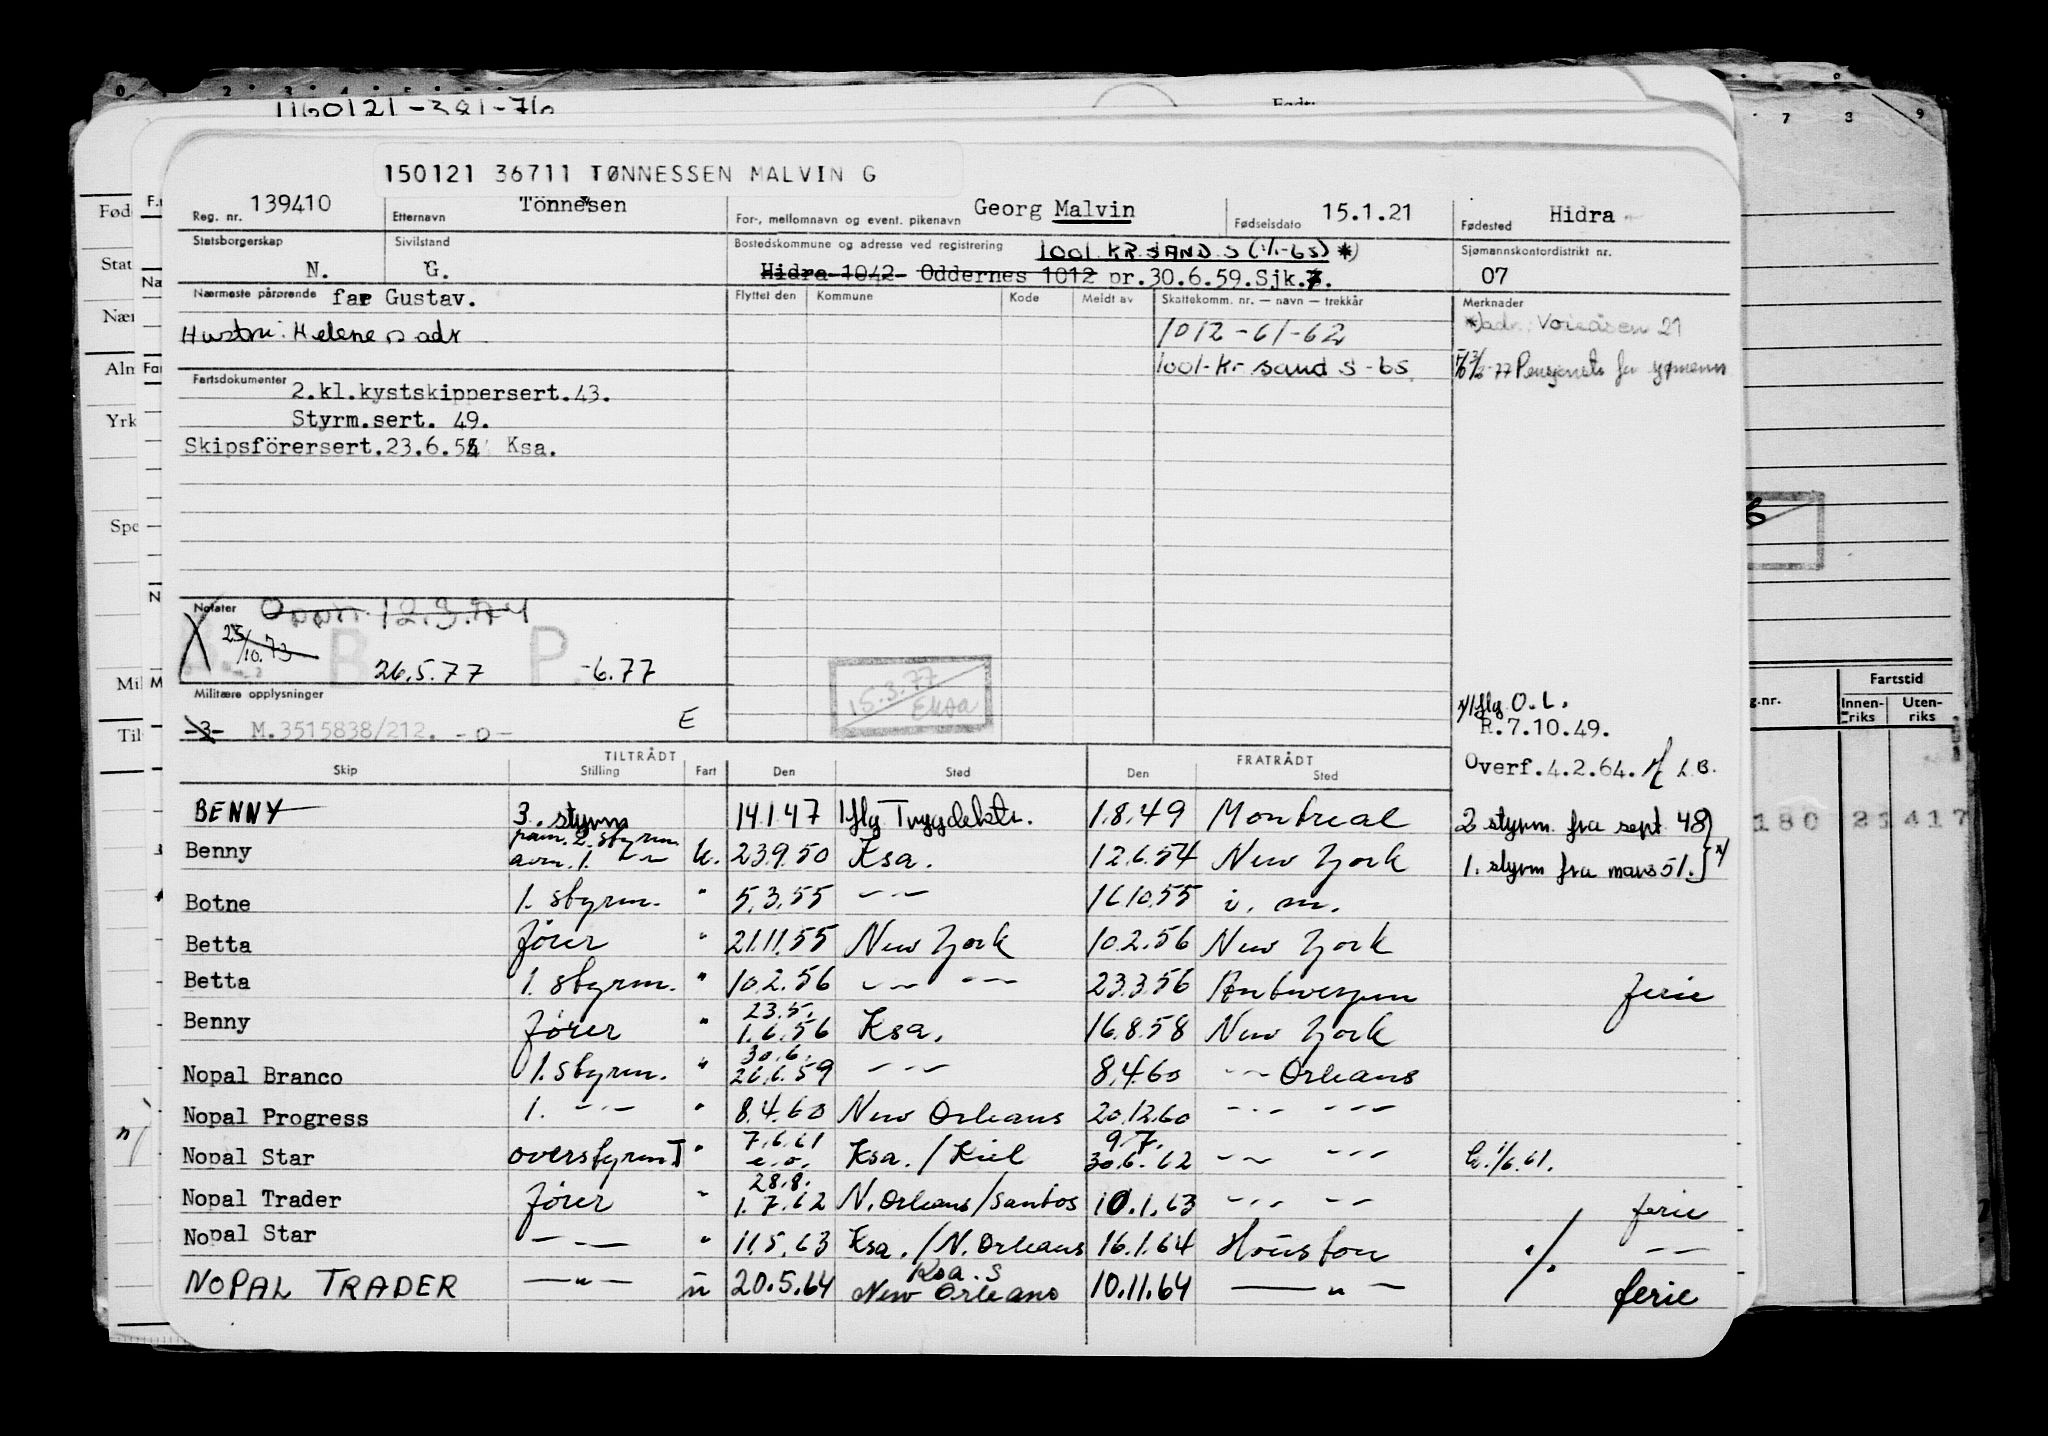 1160121-381-76
Født:
150121 36711 TØNNESSEN MALVIN G
Reg. nr. 139410 Etternavn Tönnesen For-, mellomnavn og event. pikenavn Georg Malvin Fødselsdato 15.1.21 Fødested Hidra
Statsborgerskap N. Sivilstand G. Bostedskommune og adresse ved registrering 1001 KR.SAND S (1/1-65) *)
Hidra 1042 Oddernes 1012 pr.30.6.59.Sjk.7.
Sjømannskontordistrikt nr. 07
Nærmeste pårørende far Gustav.
Hustru: Helene s adr
Flyttet den Kommune Kode Meldt av Skattekomm. nr. — navn — trekkår
1012-61-62
1001-Kr sand S-65
Merknader
*)adr: Voieåsen 21
Fartsdokumenter 2.kl.kystskippersert.43.
Styrm.sert. 49.
Skipsförersert.23.6.54 Ksa.
Notater
12.3.74
25/10.73
B P
26.5.77 -6.77
15.3.77
Militære opplysninger
-3- M.3515838/212. -o- E
x/ flg O.L.
R.7.10.49.
Overf.4.2.64. L.B.
TILTRÅDT FRATRÅDT
Skip Stilling Fart Den Sted Den Sted
BENNY 3. styrm 14.1.47 iflg Trygdektr. 1.8.49 Montreal 2 styrm. fra sept 48
Benny 2. styrm 1. -"- u. 23.9.50 Ksa. 12.6.54 New York 1. styrm fra mars 51. x/
Botne 1. styrm. " 5.3.55 -"- 16.10.55 i. m.
Betta förer " 21.11.55 New York 10.2.56 New York
Betta 1. styrm. " 10.2.56 -"- -"- 23.3.56 Antwerpen ferie
Benny förer " 23.5. 1.6.56 Ksa. 16.8.58 New York
Nopal Branco 1. styrm. " 30.6. 26.6.59 -"- 8.4.60 -"- Orleans
Nopal Progress 1. -"- " 8.4.60 New Orleans 20.12.60 -"- -"-
Nopal Star overstyrm I " 7.6.61 e.o. Ksa./Kiel 9.7. 30.6.62 -"- -"- 1/6.61.
Nopal Trader förer " 28.8. 1.7.62 N.Orleans/Santos 10.1.63 -"- -"- ferie
Nopal Star -"- " 11.5.63 Ksa./N.Orleans 16.1.64 Houston -"-
NOPAL TRADER -"- u 20.5.64 Ksa. S New Orleans 10.11.64 -"- ferie
Fartstid
Innenriks Utenriks
180 21 417